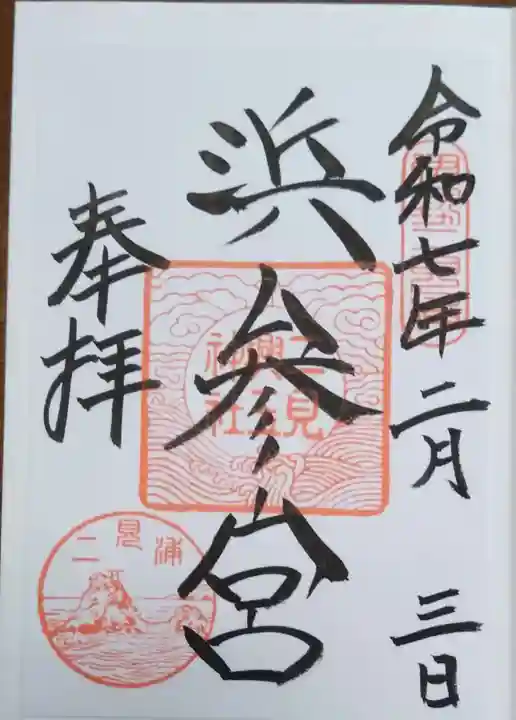 令和七年 二月 三日
浜参宮
奉拝
二見興玉神社
二見浦